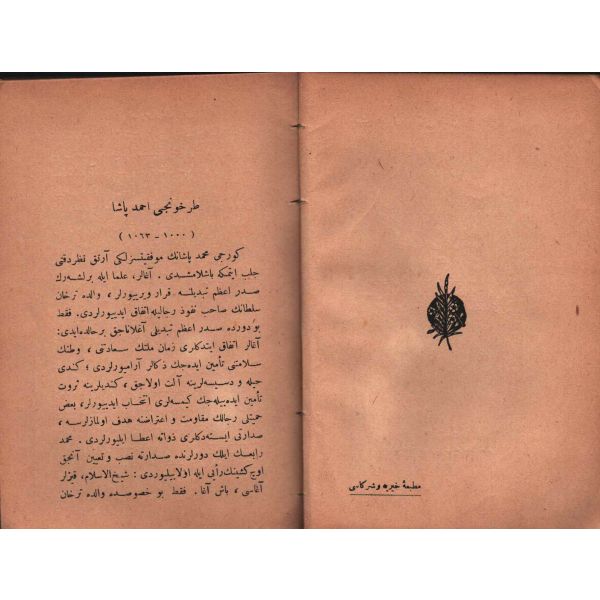 طرخونجی احمد پاشا
( ١٠٠٠ - ١٠٦٣ )
كورجی محمد پاشانك موفقیتسزلكی آرتق نظردقتی
جلب ایتمكه باشلامشدی . آغالر، علما ایله برلشه‌رك
صدر اعظم تبدیلنه قرار ویریبورلر ، والده ترخان
سلطانك صاحب نفوذ رجالیله اتفاق ایدیبورلردی. فقط
بو دورده صدر اعظم تبدیلی آغلاناجق برحالده‌ایدی:
آغالر اتفاق ایتدكلری زمان ملتك سعادتنی ، وطنك
سلامتنی تأمین ایده‌جك ذكالر آرامیورلردی ؛ كندی
حیله و دسیسه‌لرینه آلت اولاجق ، كندیلرینه ثروت
تأمین ایده‌بیله‌جك كیمسه‌لری انتخاب ایدیبورلر، بعض
حمیتلی رجالك مقاومت و اعتراضنه هدف اولمازلرسه ،
صدارتی ایسته‌دكلری ذواته اعطا ایلیورلردی . محمد
رابعك ایلك دورلرنده صدارته نصب و تعیین آنجق
اوچ كشینك رأیی ایله اولابیلیوردی : شیخ‌الاسلام، قیزلر
آغاسی ، باش آغا . فقط بو خصوصده والده ترخان
مطبعۀ خیریه و شركاسی